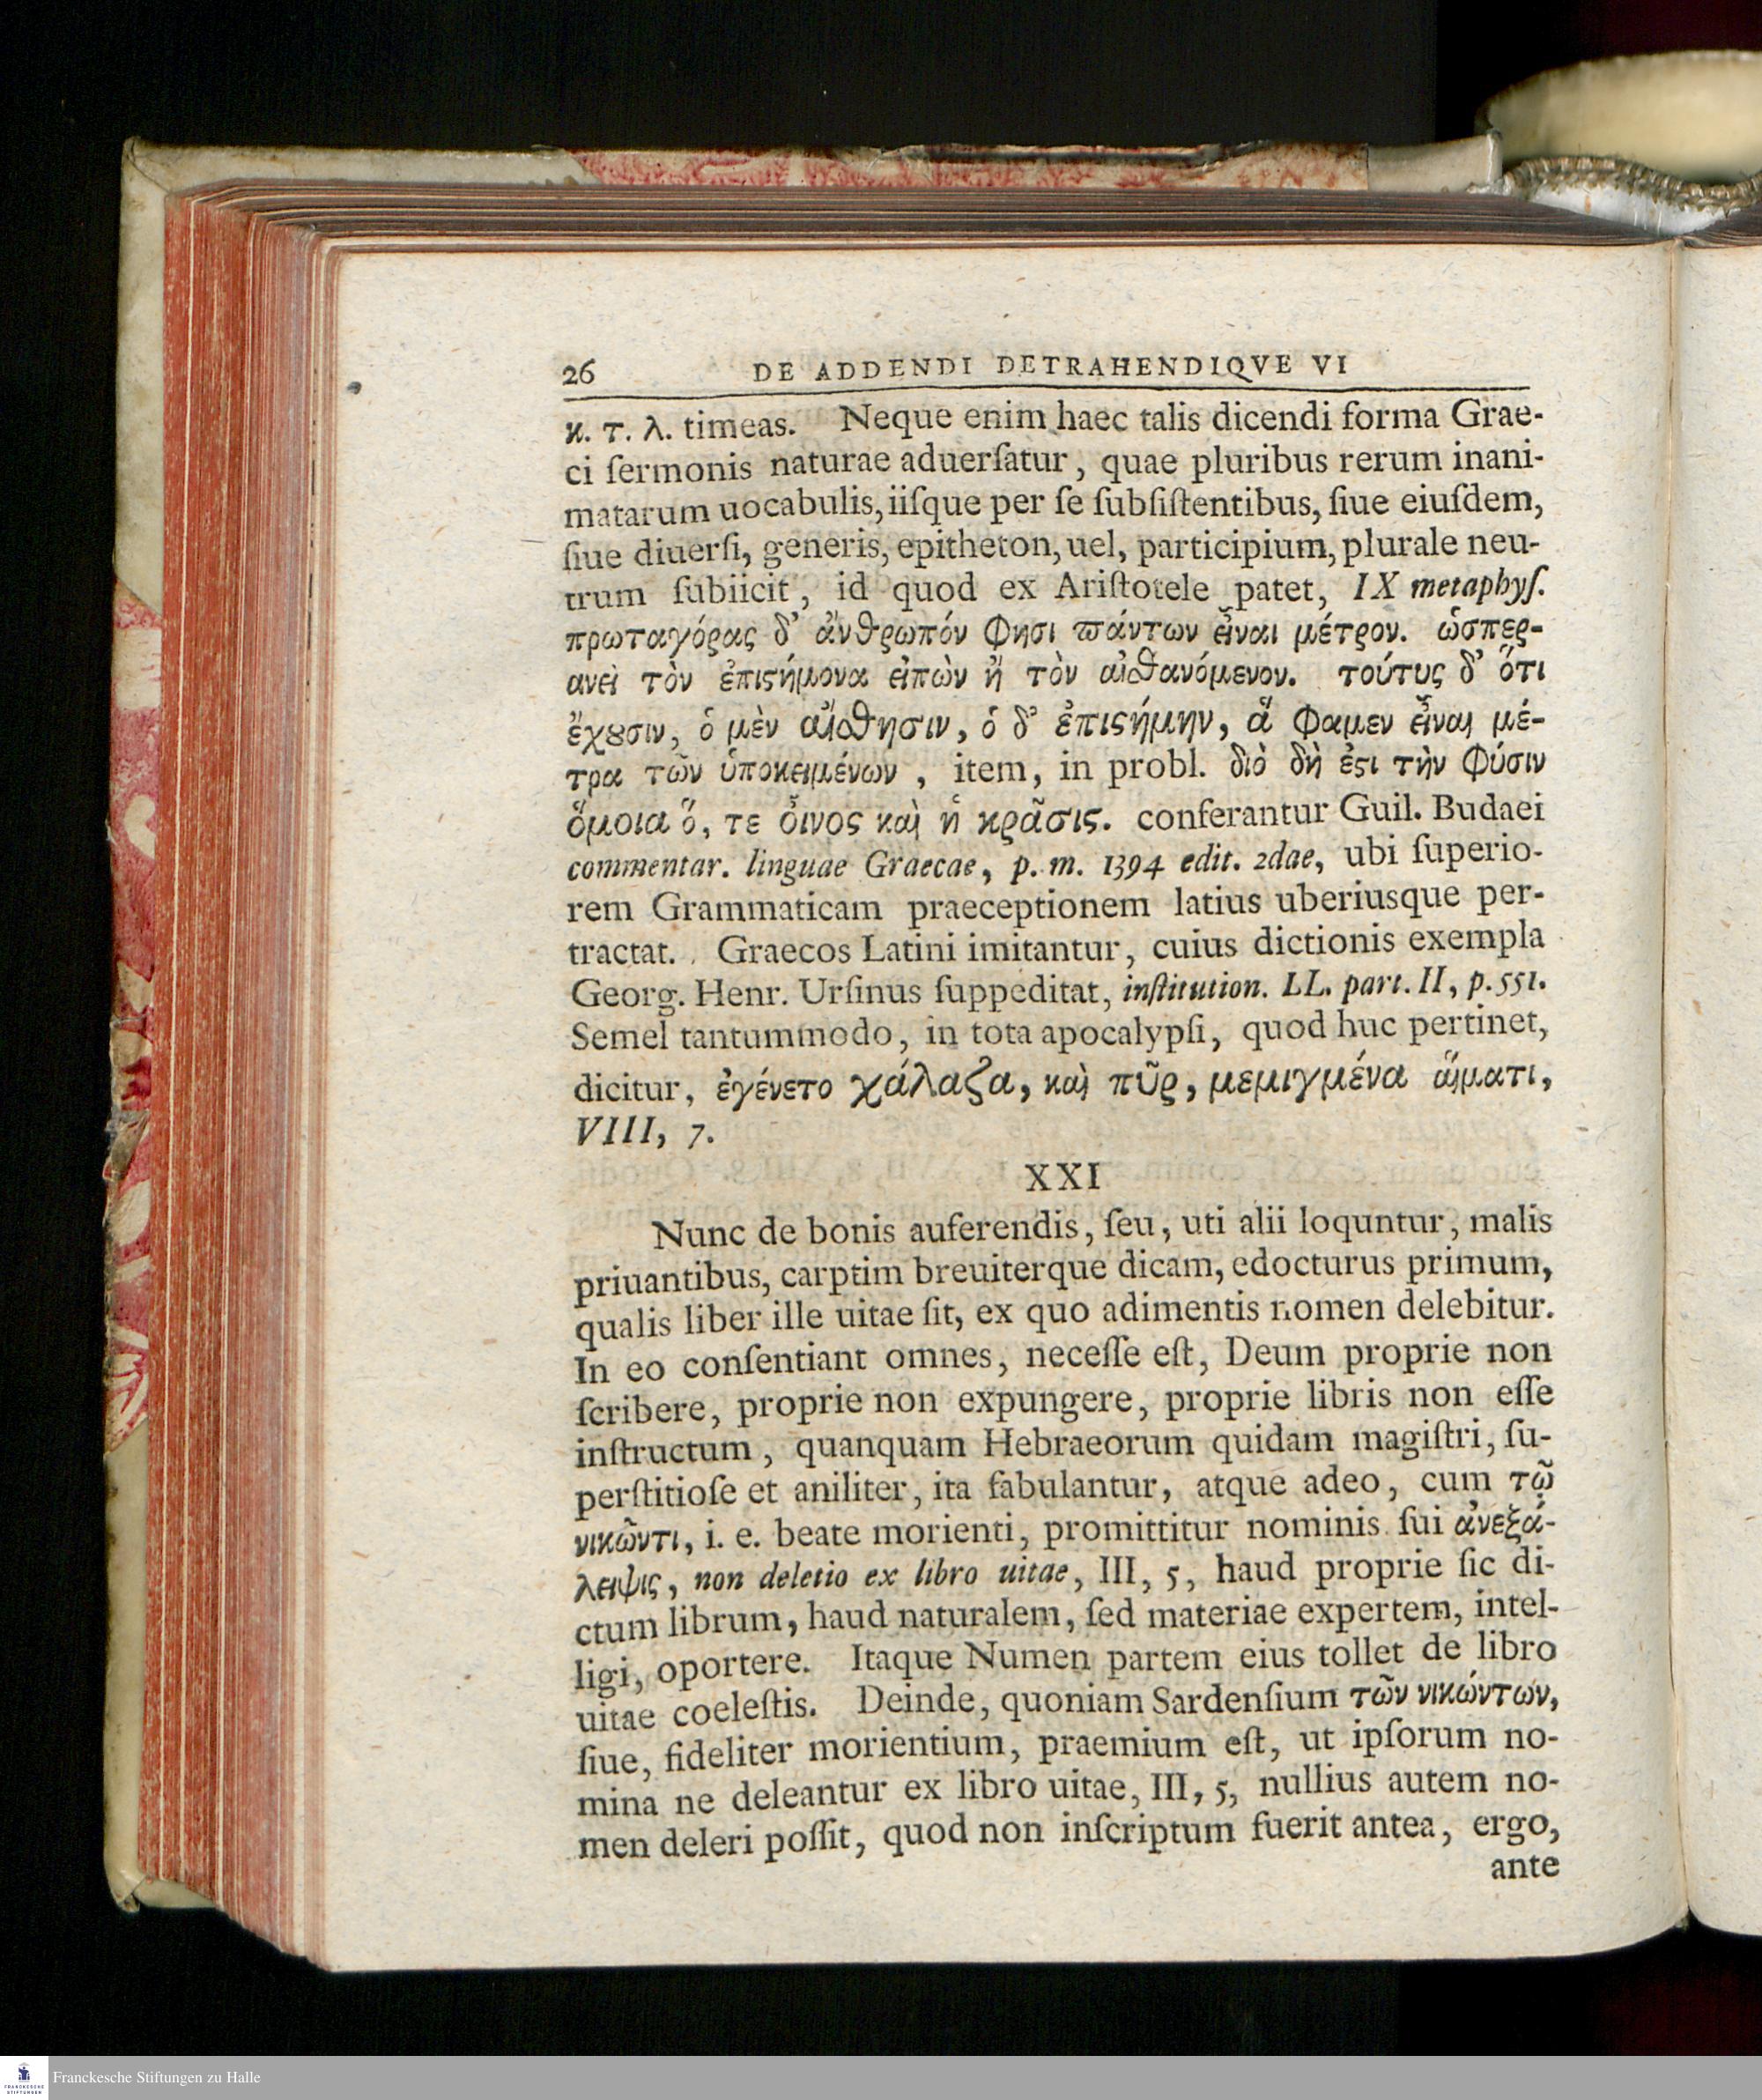 26 DE ADDENDI DETRAHENDIQVE VI
κ. τ. λ. timeas. Neque enim haec talis dicendi forma Grae-
ci ſermonis naturae aduerſatur, quae pluribus rerum inani-
matarum uocabulis, iiſque per ſe ſubſiſtentibus, ſiue eiuſdem,
ſiue diuerſi, generis, epitheton, uel, participium, plurale neu-
trum ſubiicit, id quod ex Ariſtotele patet, IX metaphyſ.
πρωταγόρας δ' ἄνθρωπόν φησι πάντων εἶναι μέτρον. ὥσπερ-
ανεὶ τὸν ἐπιϛήμονα εἰπὼν ἢ τὸν αἰσθανόμενον. τούτυς δ' ὅτι
ἔχȣσιν, ὁ μὲν αἴσθησιν, ὁ δ' ἐπιϛήμην, ἅ φαμεν εἶναι μέ-
τρα τῶν ὑποκειμένων, item, in probl. διὸ δὴ ἐϛι τὴν φύσιν
ὅμοια ὅ, τε οἶνος καὶ ἡ κρᾶσις. conferantur Guil. Budaei
commentar. linguae Graecae, p. m. 1394 edit. 2dae, ubi ſuperio-
rem Grammaticam praeceptionem latius uberiusque per-
tractat. Graecos Latini imitantur, cuius dictionis exempla
Georg. Henr. Urſinus ſuppeditat, inſtitution. LL. part. II, p. 551.
Semel tantummodo, in tota apocalypſi, quod huc pertinet,
dicitur, ἐγένετο χάλαζα, καὶ πῦρ, μεμιγμένα αἵματι,
VIII, 7.
XXI
Nunc de bonis auferendis, ſeu, uti alii loquntur, malis
priuantibus, carptim breuiterque dicam, edocturus primum,
qualis liber ille uitae ſit, ex quo adimentis nomen delebitur.
In eo conſentiant omnes, neceſſe eſt, Deum proprie non
ſcribere, proprie non expungere, proprie libris non eſſe
inſtructum, quanquam Hebraeorum quidam magiſtri, ſu-
perſtitioſe et aniliter, ita fabulantur, atque adeo, cum τῷ
νικῶντι, i. e. beate morienti, promittitur nominis ſui ἀνεξά-
λειψις, non deletio ex libro uitae, III, 5, haud proprie ſic di-
ctum librum, haud naturalem, ſed materiae expertem, intel-
ligi, oportere. Itaque Numen partem eius tollet de libro
uitae coeleſtis. Deinde, quoniam Sardenſium τῶν νικώντων,
ſiue, fideliter morientium, praemium eſt, ut ipſorum no-
mina ne deleantur ex libro uitae, III, 5, nullius autem no-
men deleri poſſit, quod non inſcriptum fuerit antea, ergo,
ante
Franckesche Stiftungen zu Halle
FRANCKESCHE
STIFTUNGEN